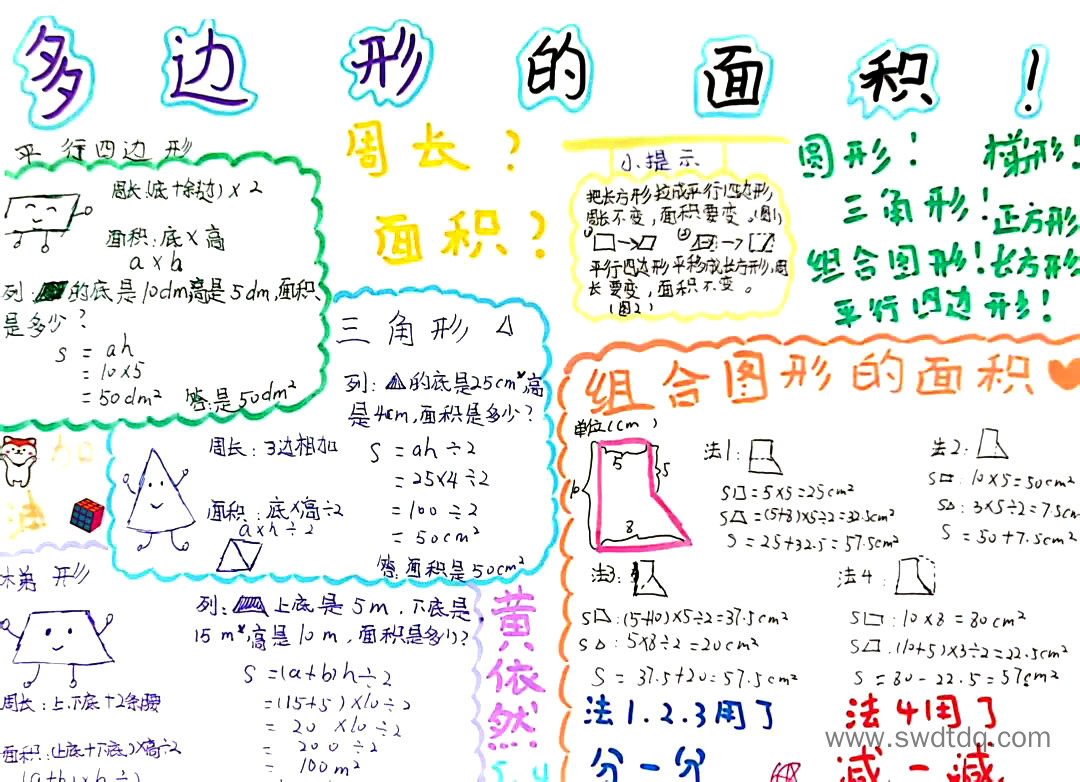 多边形的面积!
平行四边形
周长:(底+余边)×2
面积:底×高
a×h
列:的底是10dm,高是5dm,面积
是多少?
S=ah
=10×5
=50dm²
答:是50dm²
周长?
面积?
小提示
把长方形拉成平行四边形,
周长不变,面积要变。(图1)
① → ② →
平行四边形平移成长方形,周
长要变,面积不变。
(图2)
圆形!
梯形!
三角形!
正方形
组合图形!
长方形
平行四边形!
三角形
列:的底是25cm,高
是4cm,面积是多少?
周长:3边相加
面积:底×高÷2
a×h÷2
S=ah÷2
=25×4÷2
=100÷2
=50cm²
答:面积是50cm²
加
法
梯形
周长:上.下底+2条腰
面积:(上底+下底)×高÷2
(a+b)×h÷2
列:上底是5m,下底是
15m,高是10m,面积是多少?
S=(a+b)h÷2
=(15+5)×10÷2
=20×10÷2
=200÷2
=100m²
黄依然
5.4
组合图形的面积
单位(cm)
5
5
10
8
法1:
S=5×5=25cm²
S=(5+8)×5÷2=32.5cm²
S=25+32.5=57.5cm²
法2:
S:10×5=50cm²
S:3×5÷2=7.5c
S=50+7.5cm²
法3:
S:(5+10)×5÷2=37.5cm²
S:5×8÷2=20cm²
S=37.5+20=57.5cm²
法4:
S:10×8=80cm²
S:(10+5)×3÷2=22.5cm²
S=80-22.5=57cm²
法1.2.3用了
分一分
法4用了
减一减
www.swdtdq.com